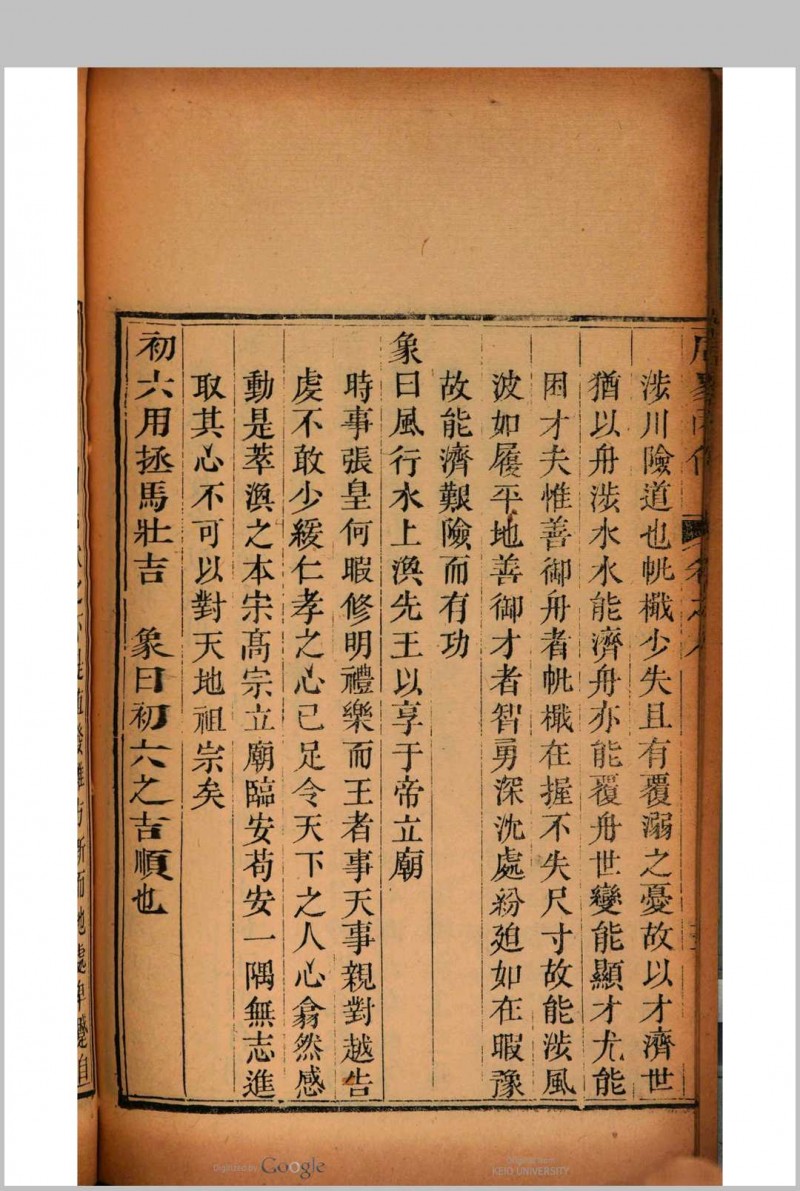 涉川險道也帆檝少失且有覆溺之憂故以才濟世
猶以舟涉水水能濟舟亦能覆舟世變能顯才尤能
困才夫惟善御舟者帆檝在握不失尺寸故能涉風
波如履平地善御才者智勇深沈處紛廹如在暇豫
故能濟艱險而有功
象曰風行水上渙先王以享于帝立廟
時事張皇何暇修明禮樂而王者事天事親對越告
虔不敢少緩仁孝之心已足令天下之人心翕然感
動是萃渙之本宋高宗立廟臨安苟安一隅無志進
取其心不可以對天地祖宗矣
初六用拯馬壯吉　象曰初六之吉順也
Digitized by Google
Original from
KEIO UNIVERSITY